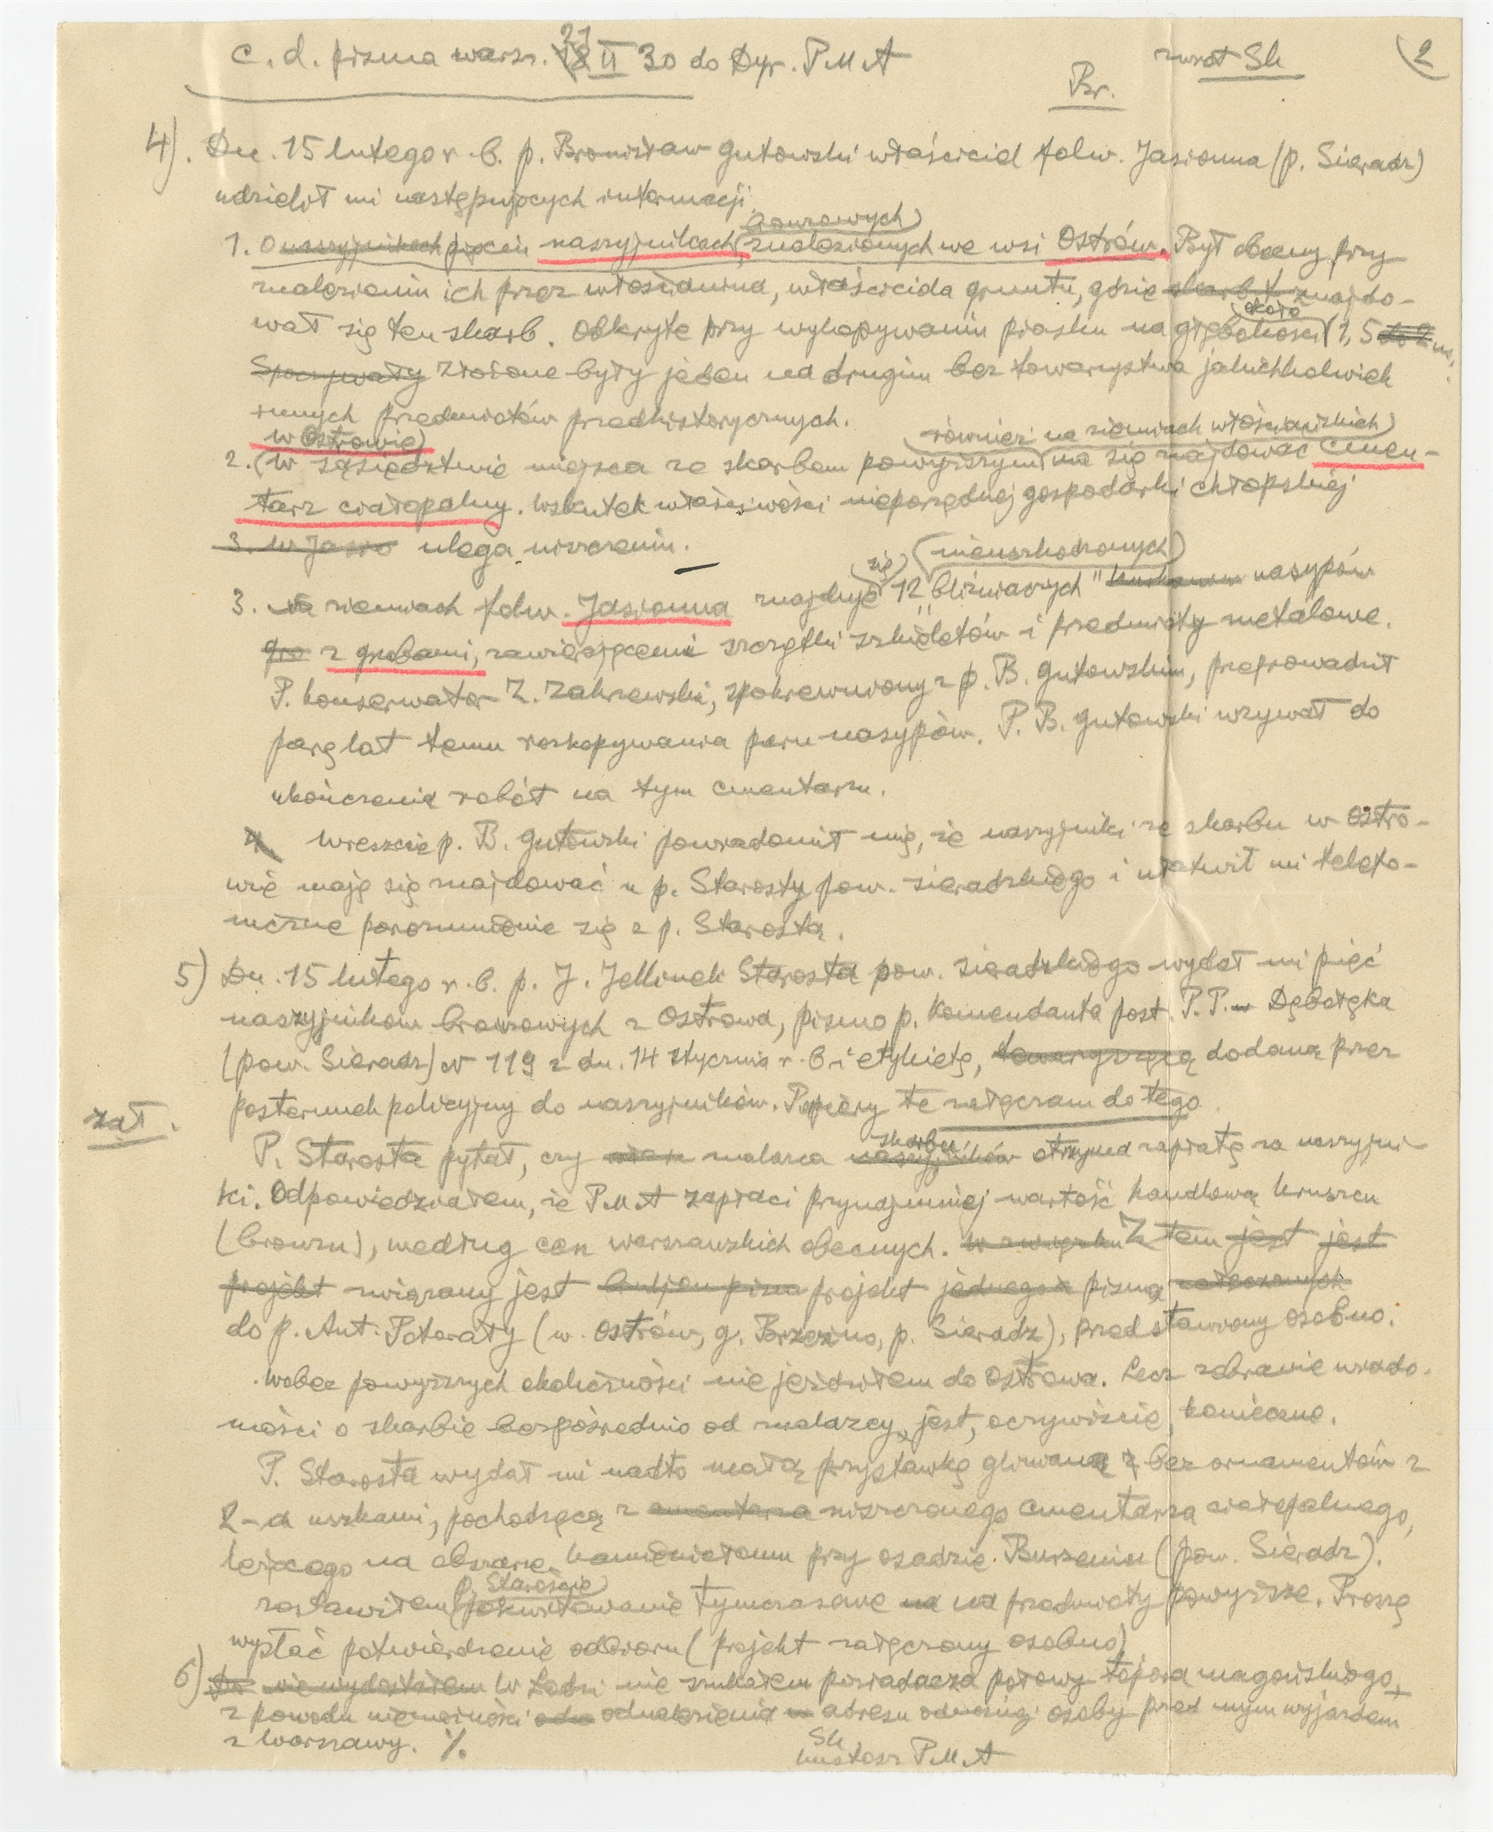 c. d. pisma warsz. 21 II 30 do Dyr. P M A
zwrot Sk
2
Br.
4). Dn. 15 lutego r. b. p. Bronisław Gutowski właściciel folw. Jasionna (p. Sieradz)
udzielił mi następujących informacji.
bronzowych
1. O naszyjnikach pięciu naszyjnikach, znalezionych we wsi Ostrów. Był obecny przy
znalezieniu ich przez włościanina, właściciela gruntu, gdzie skarb t znajdo-
około
wał się ten skarb. Odkryte przy wykopywaniu piasku na głębokości 1,5 do 2 m.
Spoczywały Złożone były jeden na drugim bez towarzystwa jakichkolwiek
innych przedmiotów przedhistorycznych.
w Ostrowie
również na ziemiach włościańskich
2. (W sąsiedztwie miejsca ze skarbem powyższym ma się znajdować cmen-
tarz ciałopalny. Wskutek właściwości nieporządnej gospodarki chłopskiej
3. W Jasio ulega niszczeniu.
się nieuszkodzonych
3. Na ziemiach folw. Jasionna znajduje 12 "bliźniaczych" kurhanów nasypów
gro z grobami, zawierającemi szczątki szkieletów i przedmioty metalowe.
P. Konserwator Z. Zakrzewski, spokrewniony z p. B. Gutowskim, przeprowadził
parę lat temu rozkopywania paru nasypów. P. B. Gutowski wzywał do
ukończenia robót na tym cmentarzu.
4. Wreszcie p. B. Gutowski powiadomił mię, że naszyjniki ze skarbu w Ostro-
wie mają się znajdować u p. Starosty pow. sieradzkiego i ułatwił mi telefo-
niczne porozumienie się z p. Starostą.
5) Dn. 15 lutego r. b. p. J. Jellinek Starosta pow. sieradzkiego wydał mi pięć
naszyjników bronzowych z Ostrowa, pismo p. Komendanta post. P.P. w Dębołęka
(pow. Sieradz) N 119 z dn. 14 stycznia r. b. i etykietę, towarzyszącą dodaną przez
posterunek policyjny do naszyjników. Papiery te załączam do tego.
zał.
skarbu
P. Starosta pytał, czy znalazca naszyjników otrzyma zapłatę za naszyjni-
ki. Odpowiedziałem, że P M A zapłaci przynajmniej wartość handlową kruszcu
(bronzu), według cen warszawskich obecnych. W związku Z tem jest jest
projekt związany jest projekt jednego pisma załączonych
do p. Ant. Poteraty (w. Ostrów, g. Brzeźno, p. Sieradz), przedstawiony osobno.
Wobec powyższych okoliczności nie jeździłem do Ostrowa. Lecz zebranie wiado-
mości o skarbie bezpośrednio od znalazcy, jest, oczywiście, konieczne.
P. Starosta wydał mi nadto małą przystawkę glinianą z bez ornamentów z
2-a uszkami, pochodzącą z cmentarza niszczonego cmentarza ciałopalnego,
leżącego na obszarze kamieniołomu przy osadzie Burzenin (pow. Sieradz).
p. Staroście
Zostawiłem pokwitowanie tymczasowe na na przedmioty powyższe. Proszę
wysłać potwierdzenie odbioru (projekt załączony osobno)
6) Do nie wydostałem W Łodzi nie szukałem posiadacza połowy topora magońskiego,
z powodu niemożności odn odnalezienia w adresu odnośnej osoby przed mym wyjazdem
z Warszawy. %
Sk
kustosz P M A